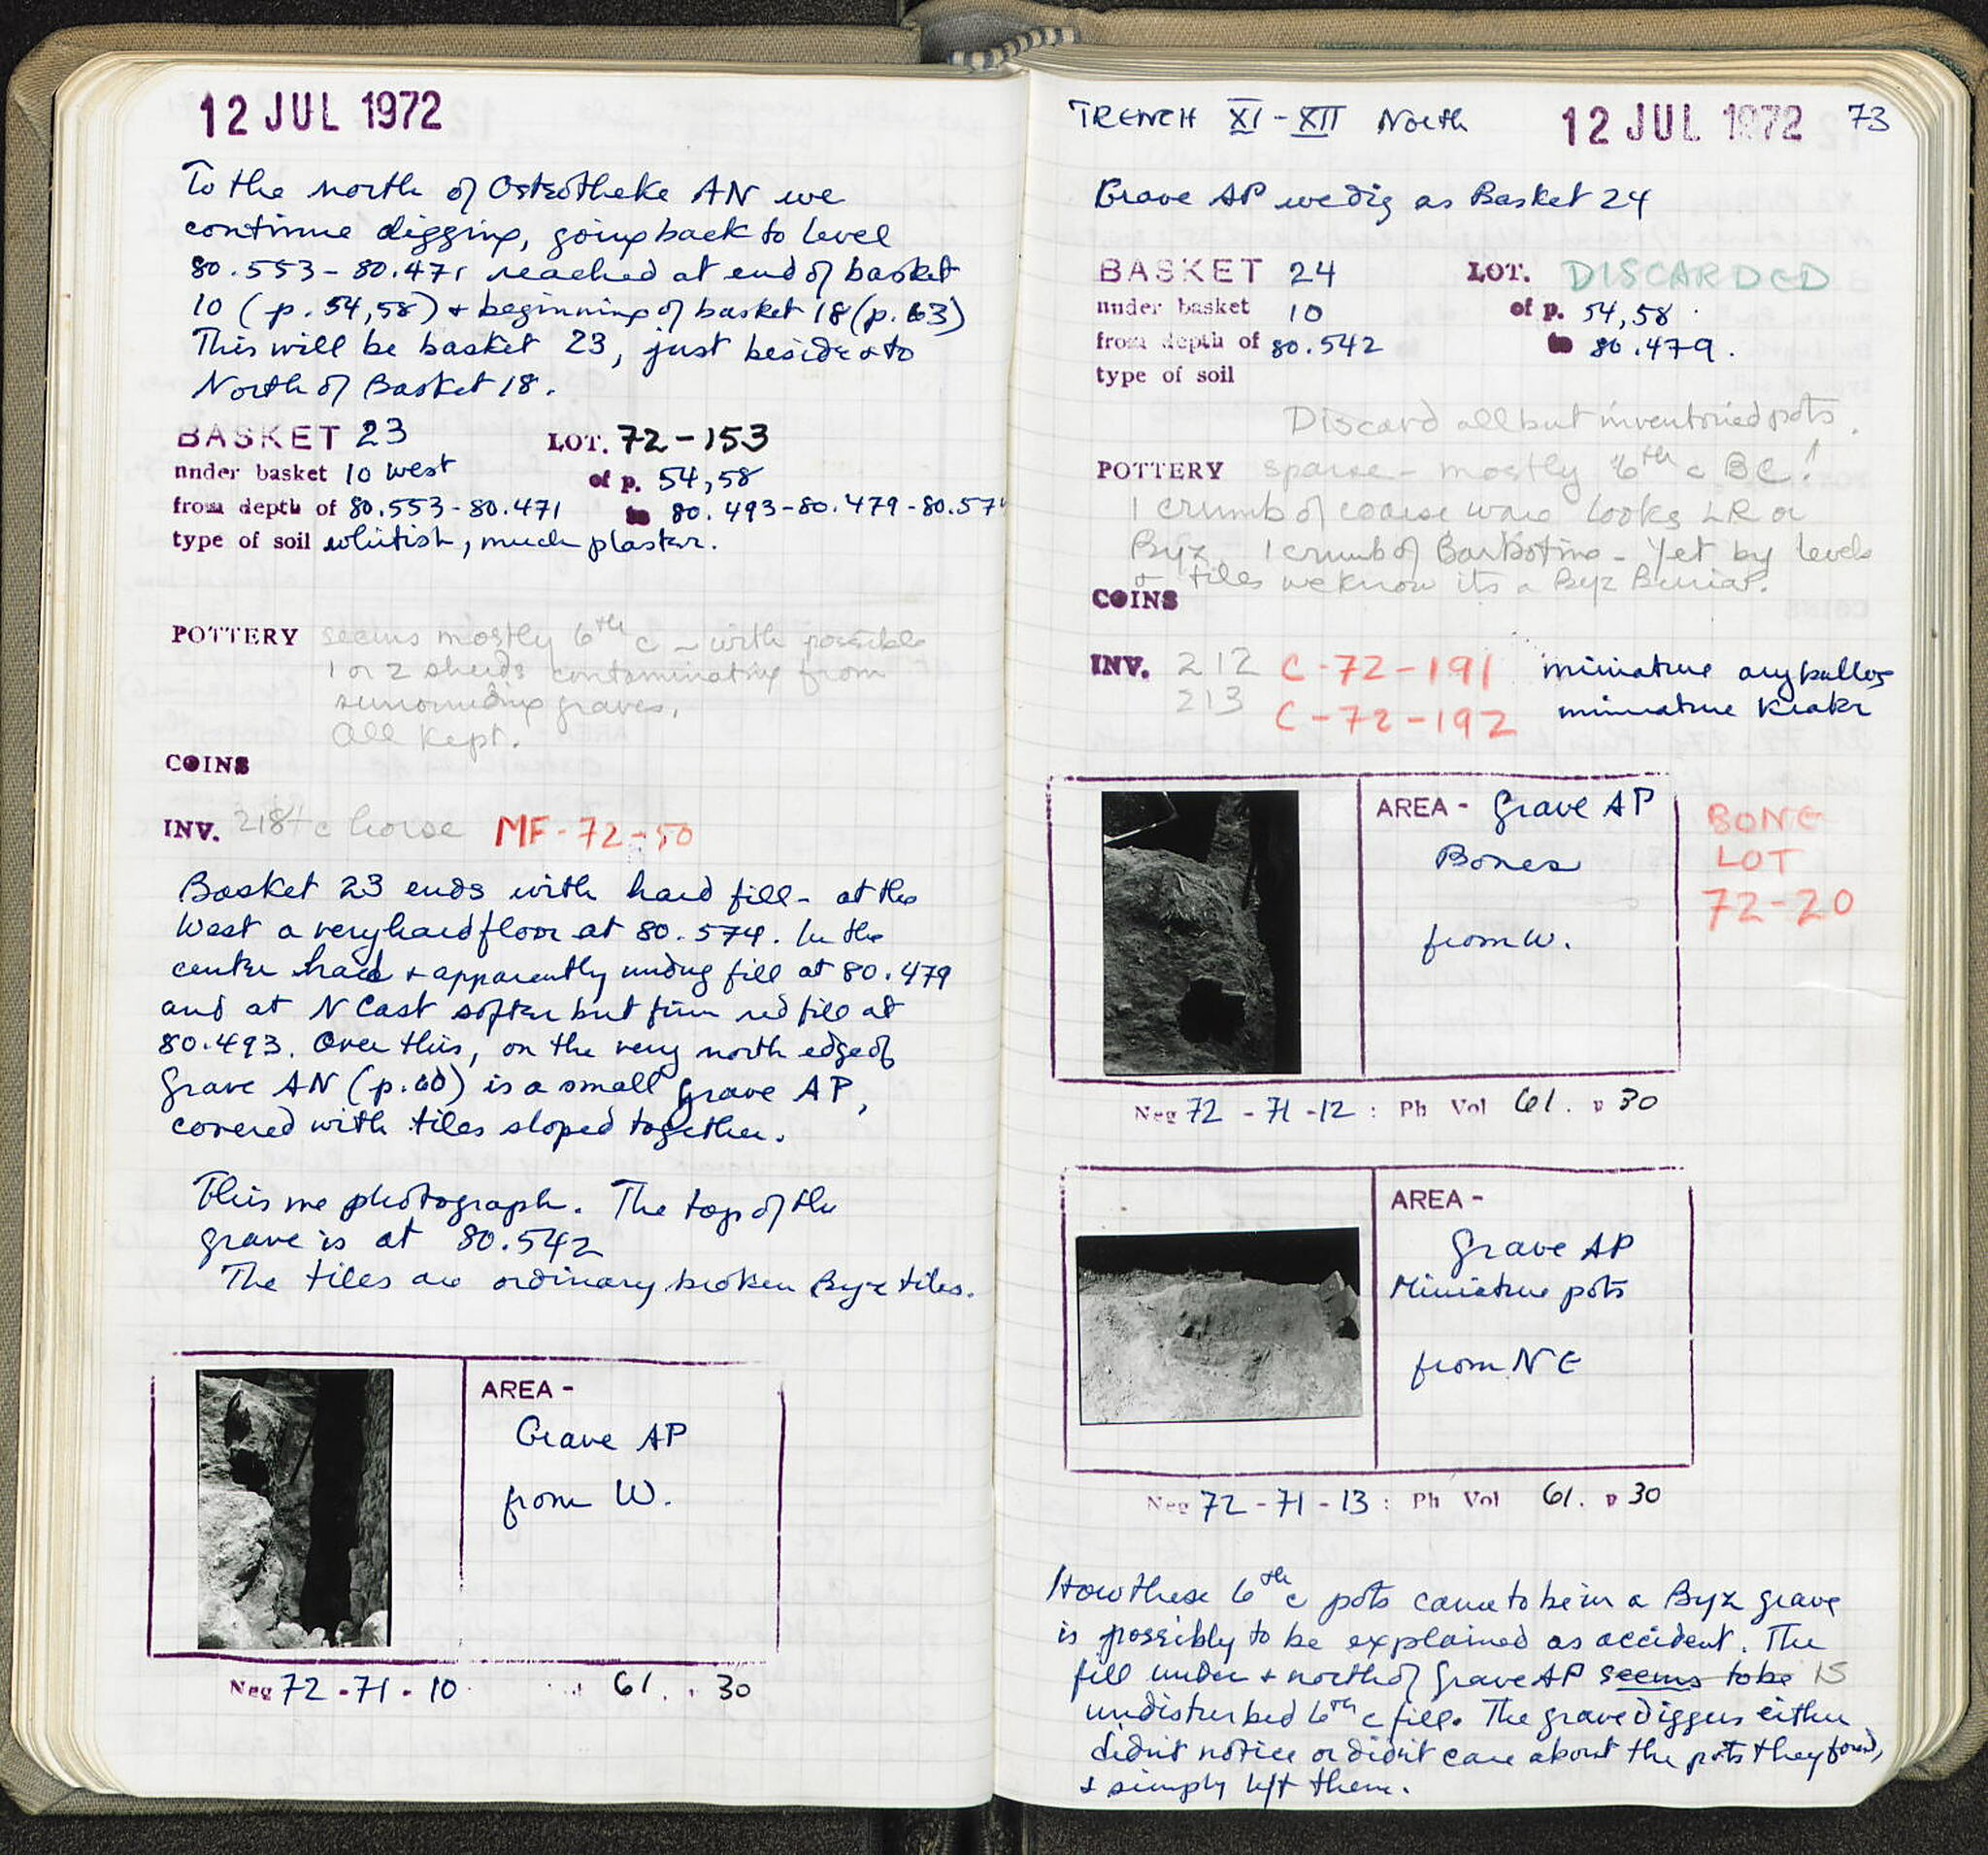 12 JUL 1972
To the north of Osteotheke AN we
continue digging, going back to level
80.553-80.471 reached at end of basket
10 (p. 54,58) + beginning of basket 18 (p. 63)
This will be basket 23, just beside & to
North of Basket 18.
BASKET 23 LOT. 72-153
under basket 10 west of p. 54,58
from depth of 80.553-80.471 to 80.493-80.479-80.574
type of soil whitish, much plaster.
POTTERY seems mostly 6th c - with possible
1 or 2 sherds contaminating from
surrounding graves.
All kept.
COINS
INV. 218 tc horse MF-72-50
Basket 23 ends with hard fill - at the
West a very hard floor at 80.574. In the
center hard + apparently undug fill at 80.479
and at N East softer but firm red fill at
80.493. Over this, on the very north edge of
Grave AN (p. 60) is a small grave AP,
covered with tiles sloped together.
This we photograph. The top of the
grave is at 80.542
The tiles are ordinary broken Byz tiles.
AREA -
Grave AP
from W.
Neg 72-71-10 61. 30
TRENCH XI-XII North 12 JUL 1972 73
Grave AP we dig as Basket 24
BASKET 24 LOT. DISCARDED
under basket 10 of p. 54,58
from depth of 80.542 to 80.479.
type of soil
Discard all but inventoried pots.
POTTERY sparse - mostly 6th c BC!
1 crumb of coarse ware looks LR or
Byz 1 crumb of Barbotine - Yet by levels
+ tiles we know its a Byz Burial.
COINS
INV. 212 C-72-191 miniature aryballos
213 C-72-192 miniature krater
AREA - Grave AP
Bones
from W.
BONE
LOT
72-20
Neg 72-71-12 : Ph Vol 61. p 30
AREA -
Grave AP
Miniature pots
from NE
Neg 72-71-13 : Ph Vol 61. p 30
How these 6th c pots came to be in a Byz grave
is possibly to be explained as accident. The
fill under + north of Grave AP seems to be IS
undisturbed 6th c fill. The gravediggers either
didn't notice or didn't care about the pots they found,
& simply left them.